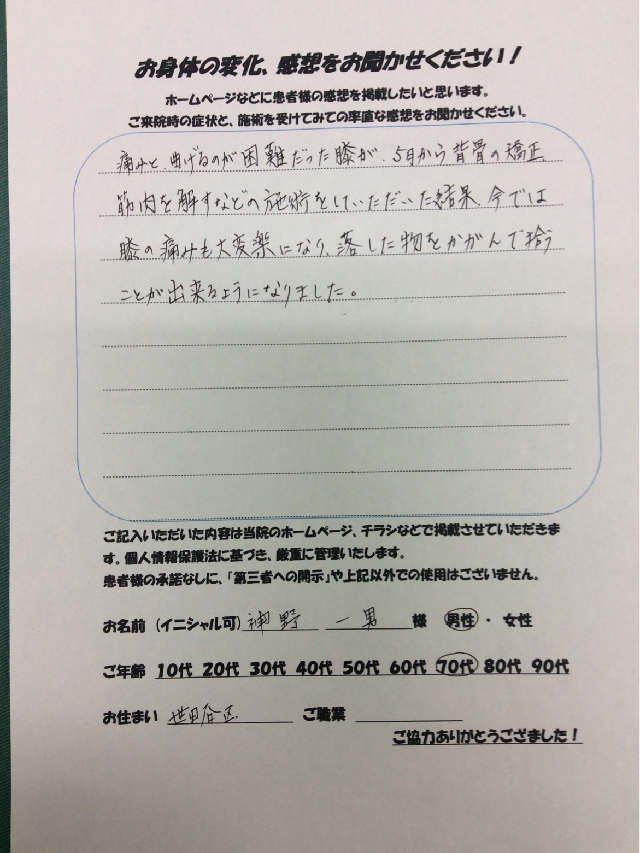 お身体の変化、感想をお聞かせください！
ホームページなどに患者様の感想を掲載したいと思います。
ご来院時の症状と、施術を受けてみての率直な感想をお聞かせください。
痛みと、曲げるのが困難だった膝が、5月から背骨の矯正
筋肉を解すなどの施術をしていただいた結果 今では
膝の痛みも大変楽になり、落した物をかがんで拾う
ことが出来るようになりました。
ご記入いただいた内容は当院のホームページ、チラシなどで掲載させていただきま
す。個人情報保護法に基づき、厳重に管理いたします。
患者様の承諾なしに、「第三者への開示」や上記以外での使用はございません。
お名前（イニシャル可） 神野 一男 様 男性 ・ 女性
ご年齢 10代 20代 30代 40代 50代 60代 70代 80代 90代
お住まい 世田谷区 ご職業
ご協力ありがとうござました！